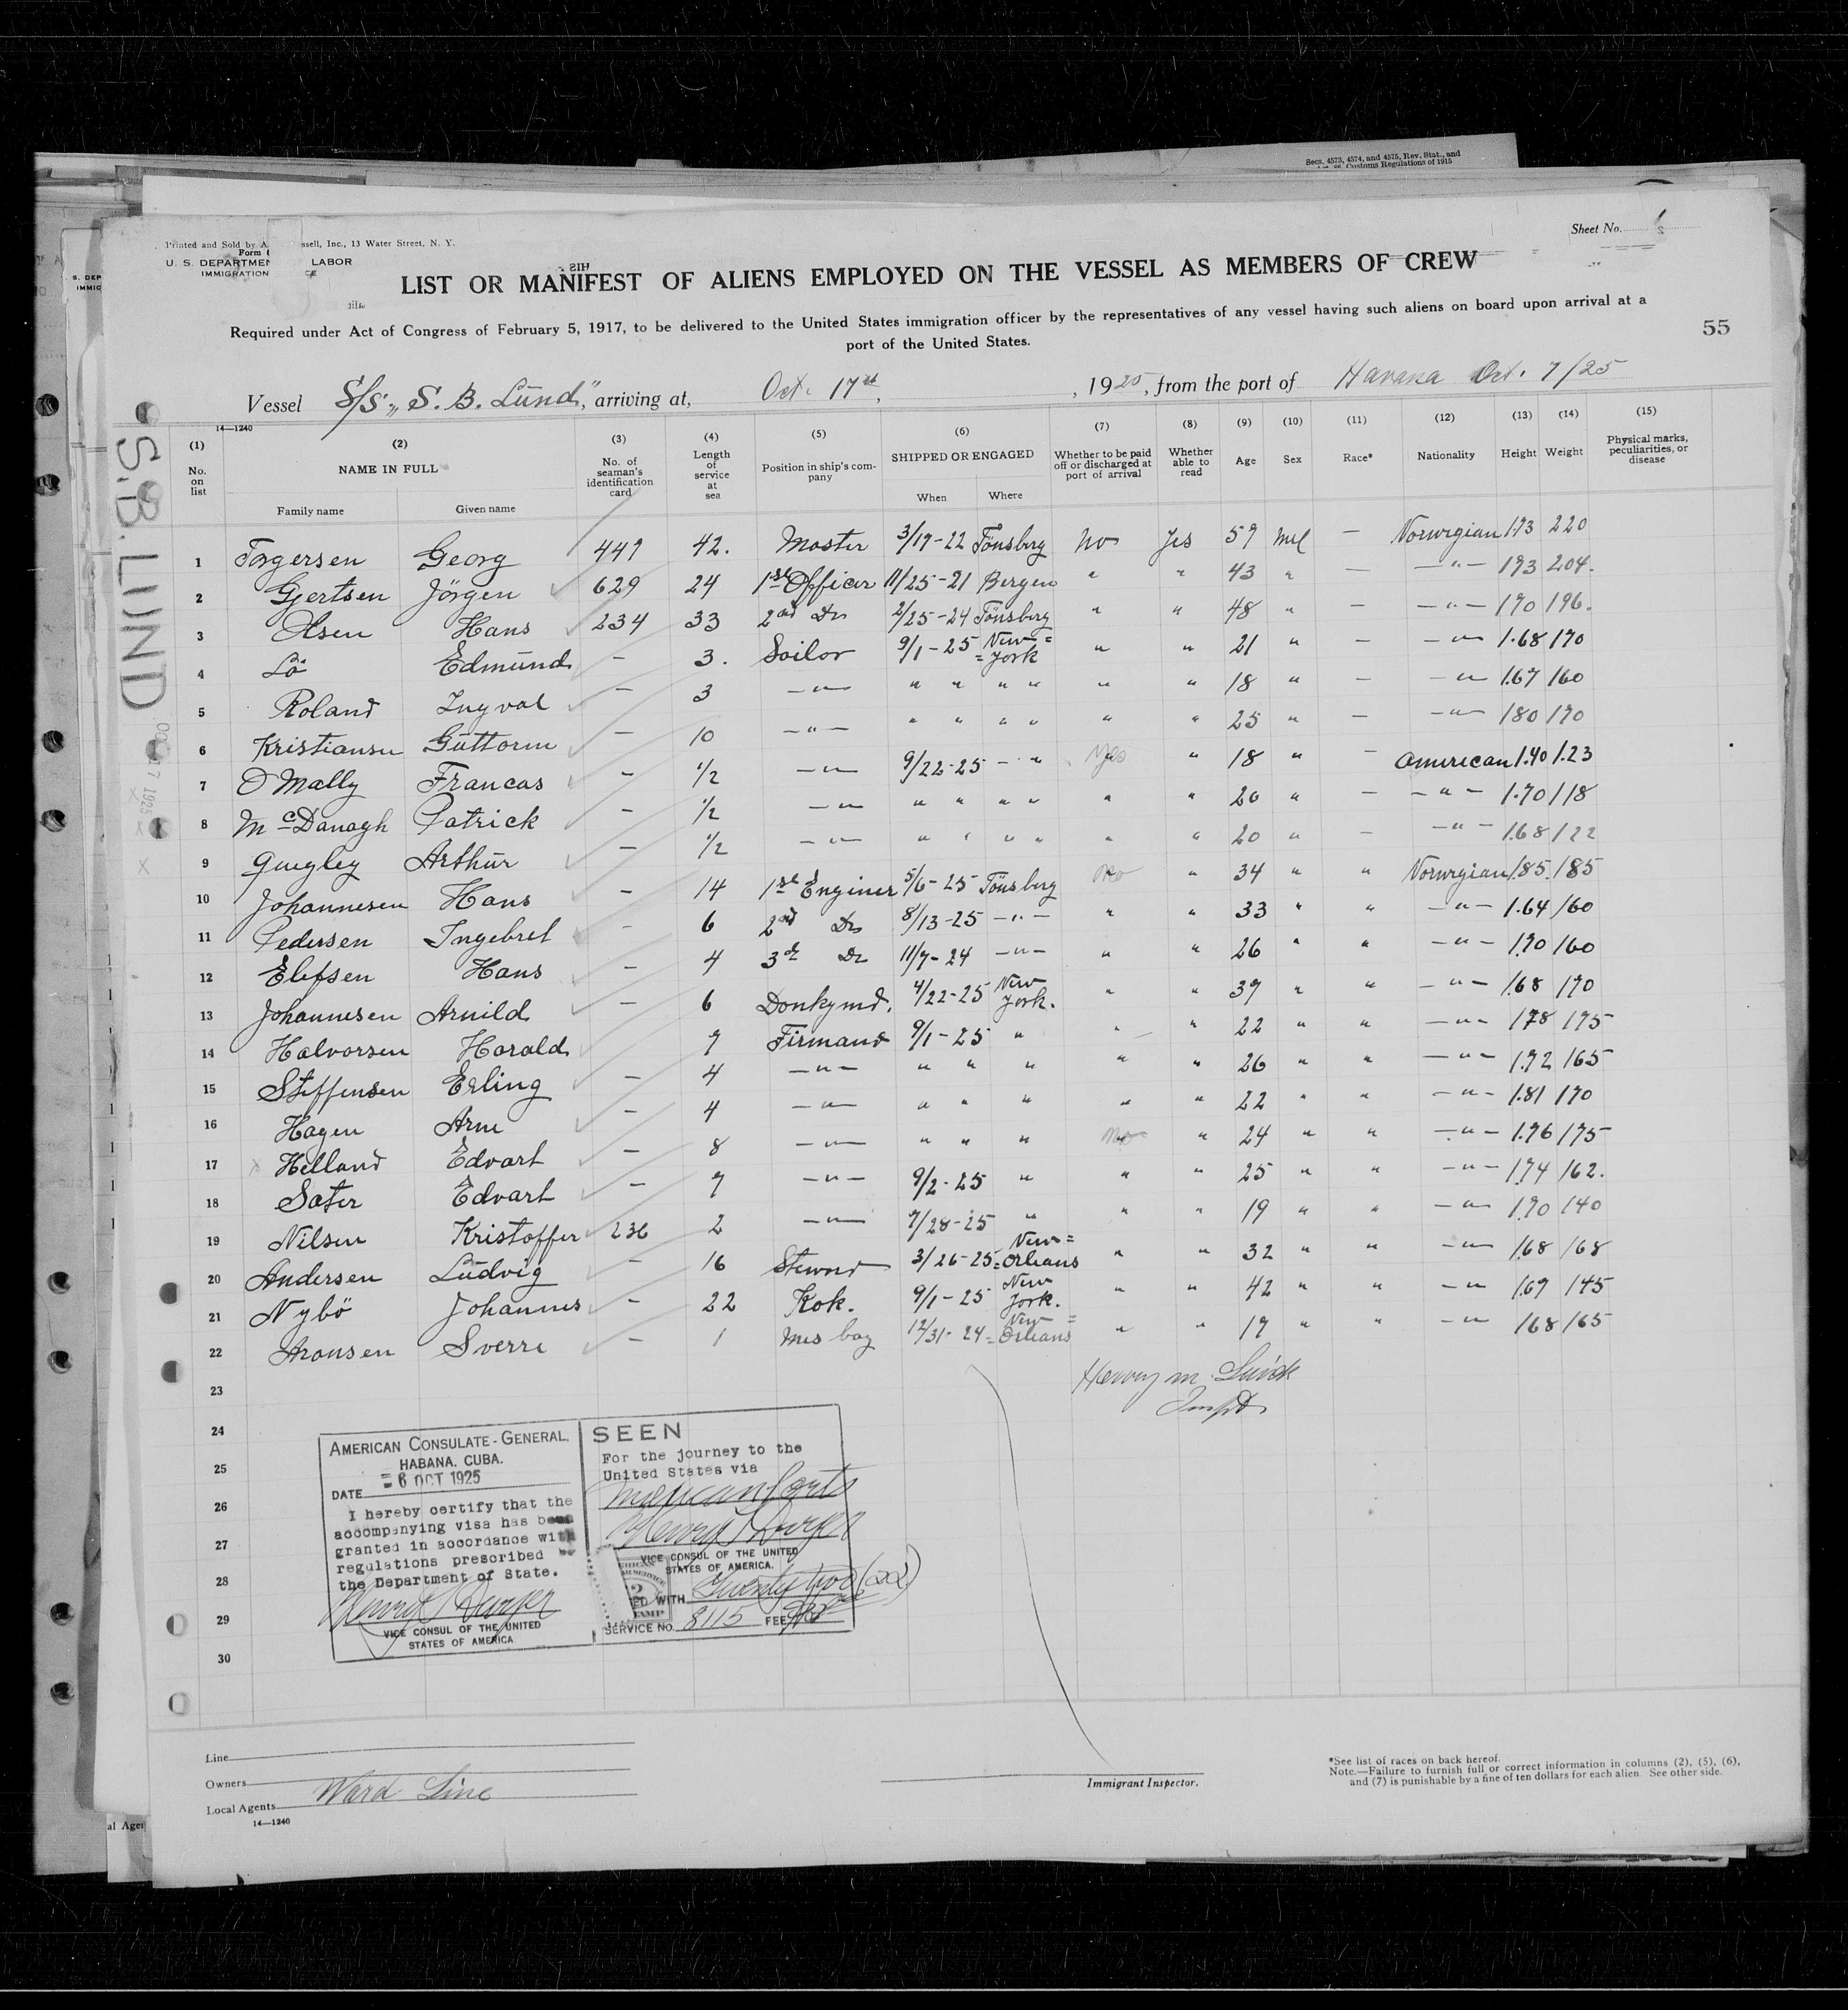 Secs. 4573, 4574, and 4575, Rev. Stat., and
Customs Regulations of 1915
Sheet No.
Printed and Sold by A. ssell, Inc., 13 Water Street, N. Y.
Form
U. S. DEPARTMEN LABOR
IMMIGRATION CE
LIST OR MANIFEST OF ALIENS EMPLOYED ON THE VESSEL AS MEMBERS OF CREW
Required under Act of Congress of February 5, 1917, to be delivered to the United States immigration officer by the representatives of any vessel having such aliens on board upon arrival at a
port of the United States.
55
Vessel S/S "S. B. Lund", arriving at, Oct. 17th, 1925, from the port of Havana Oct. 7/25
14—1240
(1) (2) (3) (4) (5) (6) (7) (8) (9) (10) (11) (12) (13) (14) (15)
No. on list NAME IN FULL No. of seaman's identification card Length of service at sea Position in ship's company SHIPPED OR ENGAGED Whether to be paid off or discharged at port of arrival Whether able to read Age Sex Race* Nationality Height Weight Physical marks, peculiarities, or disease
Family name Given name When Where
1 Torgersen Georg 447 42. Master 3/17-22 Tönsberg No Yes 57 Mel — Norwegian 1.73 220
2 Gjertsen Jörgen 629 24 1st Officer 11/25-21 Bergen " " 43 " — —"— 173 204.
3 Olsen Hans 234 33 2nd Do 2/25-24 Tönsberg " " 48 " — —"— 170 196.
4 Lö Edmund — 3. Sailor 9/1-25 New=York " " 21 " — —"— 1.68 170
5 Roland Ingval — 3 —"— " " " " " " 18 " — —"— 1.67 160
6 Kristiansen Guttorm — 10 —"— " " " " " " 25 " — —"— 180 170
7 O Mally Francas — 1/2 —"— 9/22-25 —"— Yes " 18 " — American 1.40 1.23
8 McDanagh Patrick — 1/2 —"— " " " " " " 20 " — —"— 1.70 118
9 Quigley Arthur — 1/2 —"— " " " " " " 20 " — —"— 1.68 122
10 Johannesen Hans — 14 1st Enginer 5/6-25 Tönsberg No " 34 " " Norwegian 1.85. 185
11 Pedersen Ingebret — 6 2nd Do 8/13-25 —"— " " 33 " " —"— 1.64 160
12 Elefsen Hans — 4 3d Do 11/7-24 —"— " " 26 " " —"— 1.70 160
13 Johannesen Arnild — 6 Donkymd. 4/22-25 New York. " " 37 " " —"— 1.68 170
14 Halvorsen Harald 7 Firmand 9/1-25 " " " 22 " " —"— 1.78 175
15 Steffensen Erling — 4 —"— " " " " " 26 " " —"— 1.72 165
16 Hagen Arne — 4 —"— " " " " " 22 " " —"— 1.81 170
17 Helland Edvart — 8 —"— " " " No " 24 " " —"— 1.76 175
18 Sater Edvart — 7 —"— 9/2-25 " " " 25 " " —"— 174 162.
19 Nilsen Kristoffer 236 2 —"— 7/28-25 " " " 19 " " —"— 1.70 140
20 Andersen Ludvig — 16 Steward 3/26-25 New=Orleans " " 32 " " —"— 1.68 168
21 Nybö Johannes — 22 Kok. 9/1-25 New York. " " 42 " " —"— 1.67 145
22 Aronsen Sverre — 1 Mes boy 12/31-24 New=Orleans " " 17 " " —"— 168 165
23
24
25
26
27
28
29
30
S.B. LUND
OCT 17 1925
AMERICAN CONSULATE-GENERAL,
HABANA. CUBA.
DATE 6 OCT 1925
I hereby certify that the
accompanying visa has been
granted in accordance with
regulations prescribed by
the Department of State.
VICE CONSUL OF THE UNITED
STATES OF AMERICA
SEEN
For the journey to the
United States via
Mexican Ports
VICE CONSUL OF THE UNITED
STATES OF AMERICA.
WITH Twenty two (22)
SERVICE NO. 8115 FEE
Line
Owners
Local Agents Ward Line
14—1240
Immigrant Inspector.
*See list of races on back hereof.
Note.—Failure to furnish full or correct information in columns (2), (5), (6),
and (7) is punishable by a fine of ten dollars for each alien. See other side.